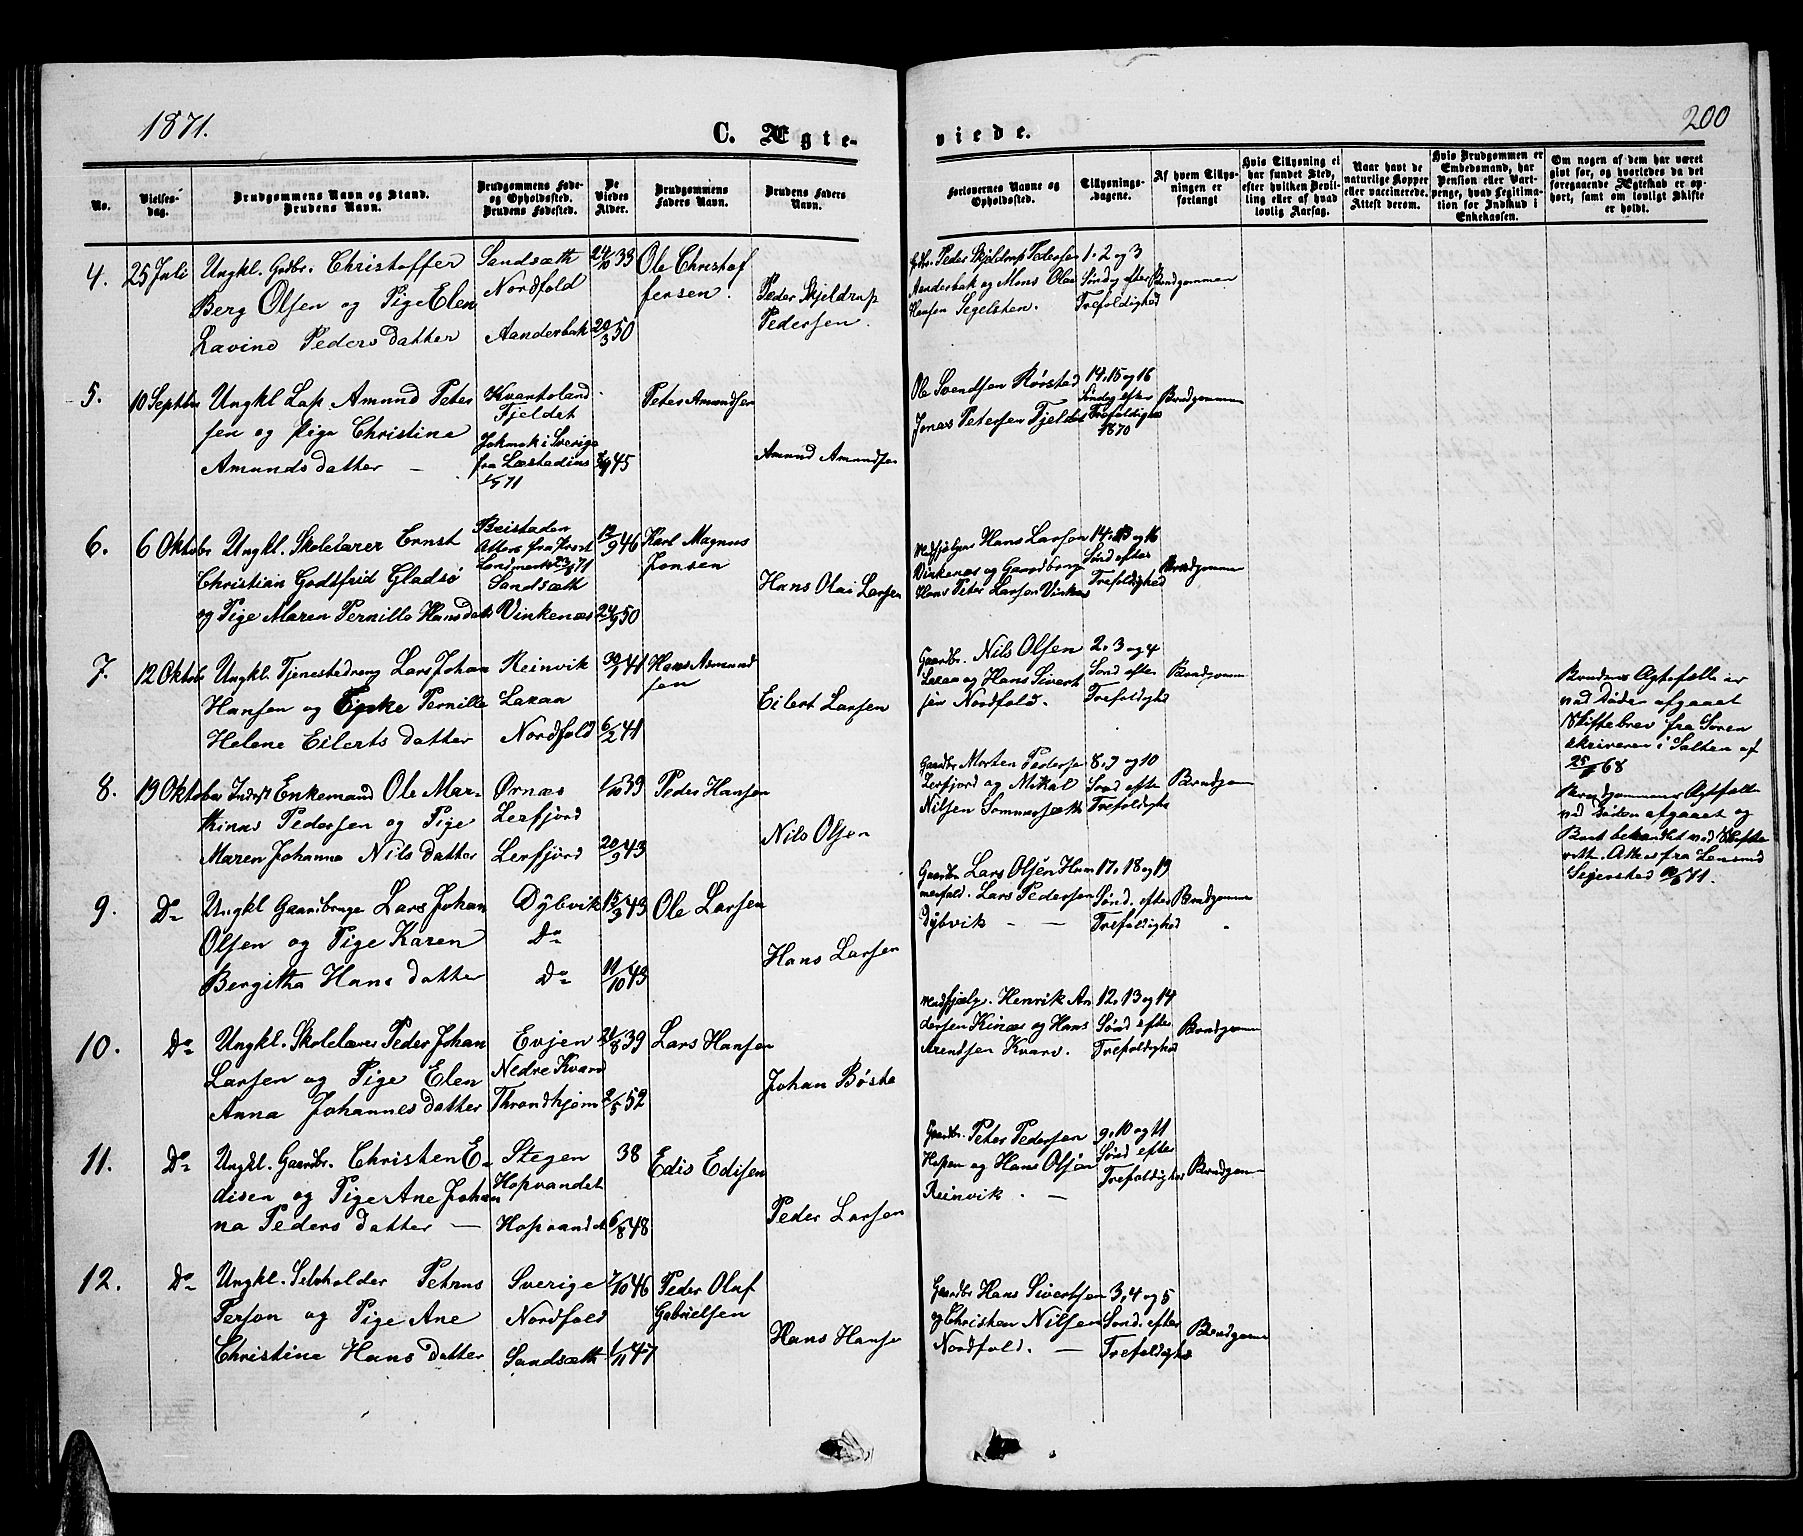 1871.
C. Ægte-
viede.
200
No.
Vielses-
dag.
Brudgommens Navn og Stand.
Brudens Navn.
Brudgommens Føde-
og Opholdssted.
Brudens Fødested.
De
Viedes
Alder.
Brudgommens
Faders Navn.
Brudens Faders
Navn.
Forlovernes Navne og
Opholdssted.
Tillysnings-
dagene.
Af hvem Tillys-
ningen er
forlangt
Hvis Tillysning ei
har fundet Sted,
efter hvilken Bevil-
ling eller af hvad
lovlig Aarsag.
Naar havt de
naturlige Kopper
eller vaccinerede.
Attest derom.
Hvis Brudgommen er
Embedsmand, har
Pension eller Vart-
penge, hvad Legitima-
tion for Indskud i
Enkekassen.
Om nogen af dem har været
givt før, og hvorledes da det
foregaaende Ægteskab er op-
hørt, samt om lovligt Skifte
er holdt.
4.
25 Juli
Ungkl. Gdbr. Christoffer
Berg Olsen og Pige Elen
Lavine Pedersdatter
Sandsæth
Nordfold
Aanderbak
24/10 33
20/3 50
Ole Christof
fersen.
Peder Skjeldrup
Pedersen.
Gdbr. Peder Skjeldrup Pedersen
Aanderbak og Mons Olai
Hansen Segelsten.
1. 2 og 3
Søndg efter
Trefoldighed
Brudgommen
5.
10 Septbr
Ungkl Lap Amund Peter
sen og Pige Christina
Amundsdatter —
Kvantoland
Fjeldet
Jokmok i Sverige
fra Læstadius
1/7 71
45
Peter Amundsen
Amund Amundsen
Ole Svendsen Rørstad
Jonas Petersen Fjeldet
14, 15 og 16
Søndag efter
Trefoldighed
1870
Brudgommen
6.
6 Oktobr
Ungkl. Skolelærer Ernst
Christian Godtfrid Gladsø
og Pige Maren Pernille Hansdatt
Beistaden
Attest fra Provst
Sandsæth
Vinkenæs
12/9 46
24/9 50
Karl Magnus
Jonsen
Hans Olai Larsen
Medhjælper Hans Larsen
Vinkenæs og Gaardbrug
Hans Peter Larsen Vinkes
14. 15 og 16
Sønd efter
Trefoldighed
Brudgomme
7.
12 Oktobr
Ungkl. Tjenestedreng Lars Johan
Hansen og Enke Pernille
Helene Eilertsdatter
Reinvik
Laxaa
Nordfold
41
6/2 41
Hans Asmund
sen
Eilert Larsen
Gaardbr. Nils Olsen
Laxaa og Hans Sivert
sen Nordfold.
2. 3 og 4
Sønd efter
Trefoldighd
Brudgomm
Brudens Ægtefælle er
ved Døden afgaaet
Skiftebrev fra Soren
skriveren i Salten af
68
8.
19 Oktober
Inderst Enkemand Ole Mar-
thinus Pedersen og Pige
Maren Johanna Nilsdatter
Ørnæs
Lerfjord
Lerfjord
1/10 39
20/9 43
Peder Hansen
Nils Olsen
Gaardbr Morten Pedersen
Lerfjord og Mikal
Nilsen Sommersæth
8, 9 og 10
Sønd efter
Trefoldighe
Brudgom
Brudgommens Ægtefælle
ved Døden afgaaet og
Boet behandlet ved Skifte
retten. Attest fra Lensmd
Sejersted 71.
9.
Do
Ungkl Gaardbruge Lars Johan
Olsen og Pige Karen
Bergitha Hansdatter
Dybvik
Do
Do
15/9 43
11/10 43
Ole Larsen
Hans Larsen
Gaardbr Lars Olsen Ham
merfald. Lars Pedersen
Dybvik — —
17, 18 og 19
Sønd. efter
Trefoldighed
Brudgomme
10.
Do
Ungkl. Skolelærer Peder Johan
Larsen og Pige Elen
Anna Johannesdatter
Evjen
Nedre Kvarv
Throndhjem
21/8 39
2/5 52
Lars Hansen
Johan Bøste
Medhjælp. Henrik An
dersen Kinæs og Hans
Arendsen Kvarv.
12, 13 og 14
Sønd efter
Trefoldighed
Brudgomm
11.
Do
Ungkl. Gaardbr. Christen E-
disen og Pige Ane Johan
na Pedersdatter —
Stegen
Hopvandet
Hopvandet
38
6/8 48
Edis Edisen
Peder Larsen
Gaardbr. Peter Pedersen
Hopen og Hans Olsen
Reinvik. —
9, 10 og 11
Sønd efter
Trefoldighed
Brudgomm
12.
Do
Ungkl. Selvholder Petrus
Person og Pige Ane
Christine Hansdatter
Sverige
Nordfold
Sandsæth
7/10 46
1/11 47
Peder Oluf
Gabrielsen
Hans Hansen
Gaardbr Hans Sivertsen
og Christen Nilsen
Nordfold. —
3, 4 og 5
Sønd. efter
Trefoldighe
Brudgomm